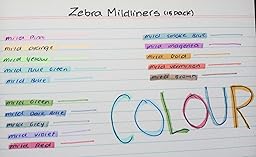 Zebra Mildliners (15 pack)
mild Pink
mild Orange
mild Yellow
mild Blue Green
mild Blue
mild Green
mild Dark Blue
mild Grey
mild Violet
mild Red
mild Smoke Blue
mild Magenta
mild Gold
mild Vermilion
mild Brown
COLOUR